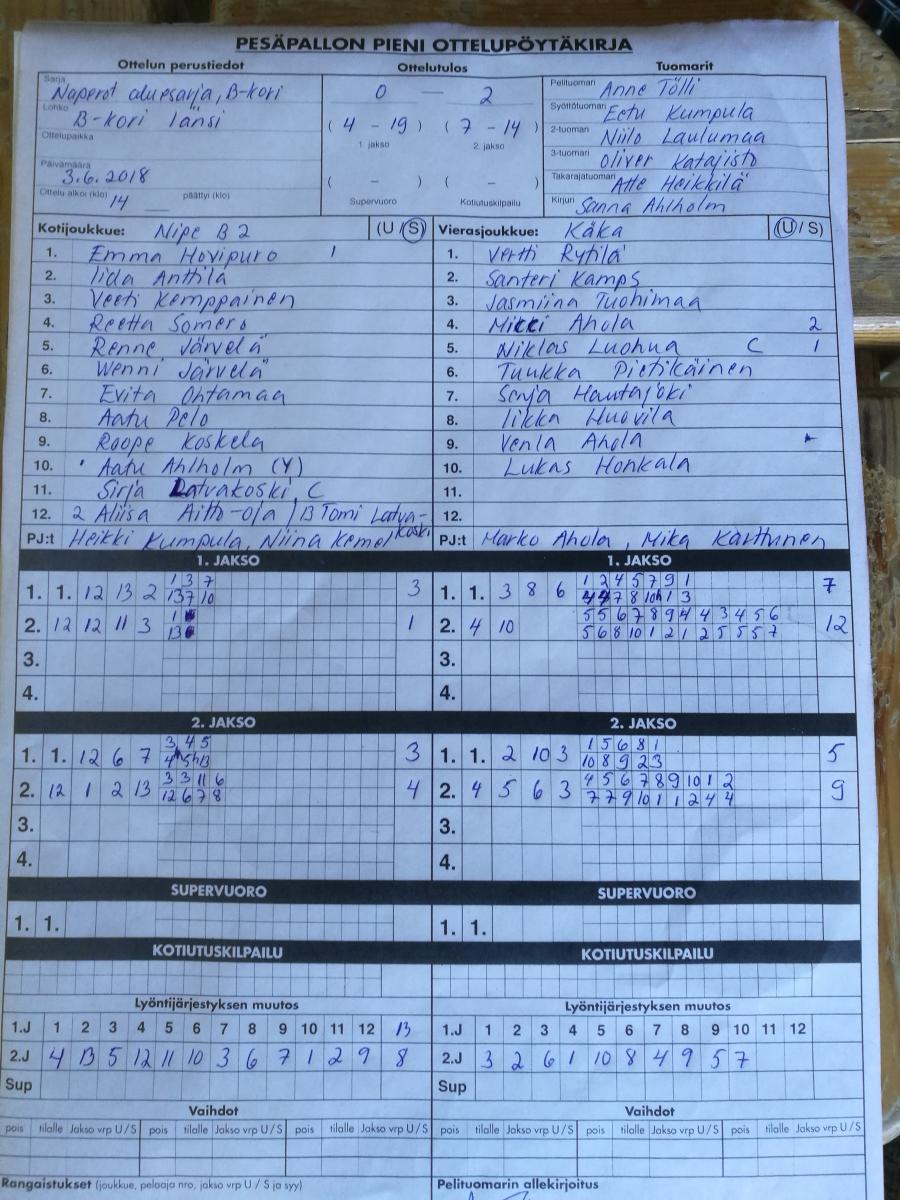 PESÄPALLON PIENI OTTELUPÖYTÄKIRJA
Ottelun perustiedot Ottelutulos Tuomarit
Sarja Naperot aluesarja, B-kori 0 — 2 Pelituomari Anne Tölli
Lohko B-kori länsi (4 - 19) (7 - 14) Syöttötuomari Eetu Kumpula
Ottelupaikka 1. jakso 2. jakso 2-tuomari Niilo Laulumaa
3-tuomari Oliver Katajisto
Päivämäärä 3.6.2018 ( - ) ( - ) Takarajatuomari Atte Heikkilä
Ottelu alkoi (klo) 14 päättyi (klo) Supervuoro Kotiutuskilpailu Kirjuri Sanna Ahlholm
Kotijoukkue: Nipe B2 (U / S) Vierasjoukkue: Käkä (U / S)
1. Emma Hovipuro 1 1. Vertti Rytilä
2. Iida Anttila 2. Santeri Kamps
3. Veeti Kemppainen 3. Jasmiina Tuohimaa
4. Reetta Somero 4. Mikki Ahola 2
5. Renne Järvelä 5. Niklas Luohua C 1
6. Wenni Järvelä 6. Tuukka Pietikäinen
7. Evita Ohtamaa 7. Sonja Hautajoki
8. Aatu Pelo 8. Iikka Huovila
9. Roope Koskela 9. Venla Ahola
10. Aatu Ahlholm (Y) 10. Lukas Honkala
11. Sirja Latvakoski C 11.
12. 2 Aliisa Aitto-oja / 13 Tomi Latva-koski 12.
PJ:t Heikki Kumpula, Niina Kemel PJ:t Marko Ahola, Mika Karttunen
1. JAKSO 1. JAKSO
1 3 7 1 2 4 5 7 9 1
1. 1. 12 13 2 13 7 10 3 1. 1. 3 8 6 7 8 10 1 3 7
1 5 5 6 7 8 9 4 4 3 4 5 6
2. 12 12 11 3 13 1 2. 4 10 5 6 8 10 1 2 1 2 5 5 5 7 12
3. 3.
4. 4.
2. JAKSO 2. JAKSO
3 4 5 1 5 6 8 1
1. 1. 12 6 7 4 5 13 3 1. 1. 2 10 3 10 8 9 2 3 5
3 3 11 6 4 5 6 7 8 9 10 1 2
2. 12 1 2 13 12 6 7 8 4 2. 4 5 6 3 7 7 9 10 1 1 2 4 4 9
3. 3.
4. 4.
SUPERVUORO SUPERVUORO
1. 1. 1. 1.
KOTIUTUSKILPAILU KOTIUTUSKILPAILU
Lyöntijärjestyksen muutos Lyöntijärjestyksen muutos
1.J 1 2 3 4 5 6 7 8 9 10 11 12 13 1.J 1 2 3 4 5 6 7 8 9 10 11 12
2.J 4 13 5 12 11 10 3 6 7 1 2 9 8 2.J 3 2 6 1 10 8 4 9 5 7
Sup Sup
Vaihdot Vaihdot
pois tilalle Jakso vrp U / S pois tilalle Jakso vrp U / S pois tilalle Jakso vrp U / S pois tilalle Jakso vrp U / S pois tilalle Jakso vrp U / S pois tilalle Jakso vrp U / S
Rangaistukset (joukkue, pelaaja nro, jakso vrp U / S ja syy) Pelituomarin allekirjoitus